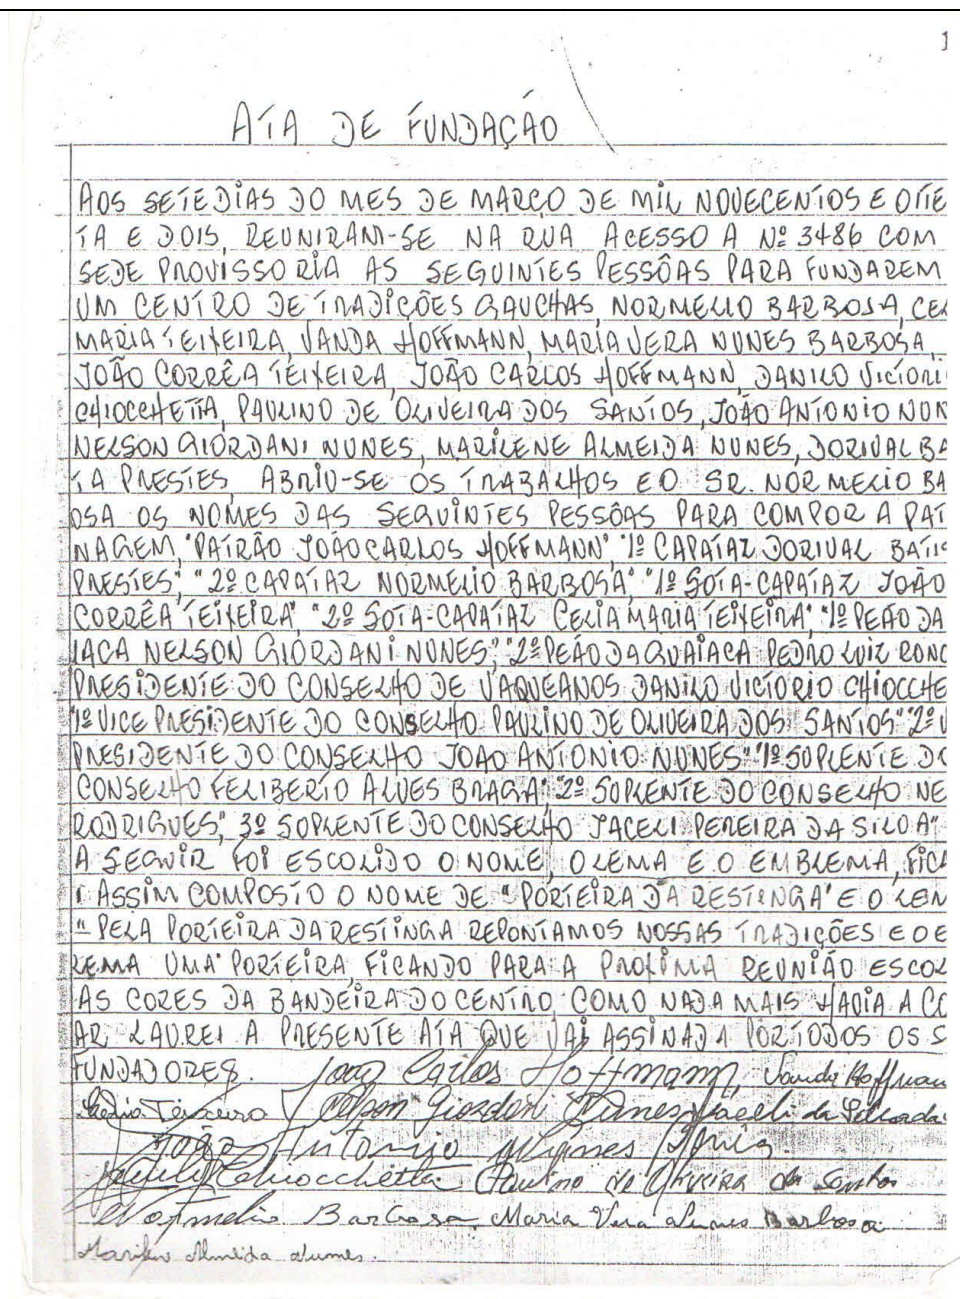 1
ATA DE FUNDAÇÃO
AOS SETE DIAS DO MES DE MARÇO DE MIL NOVECENTOS E OITE
TA E DOIS, REUNIRAM-SE NA RUA ACESSO A Nº 3486 COM
SEDE PROVISSORIA AS SEGUINTES PESSÔAS PARA FUNDAREM
UM CENTRO DE TRADIÇÕES GAUCHAS, NORMELIO BARBOSA, CE
MARIA TEIXEIRA, VANDA HOFFMANN, MARIA VERA NUNES BARBOSA,
JOÃO CORRÊA TEIXEIRA, JOÃO CARLOS HOFFMANN, DANILO VICTORI
CHIOCCHETTA, PAULINO DE OLIVEIRA DOS SANTOS, JOÃO ANTONIO NUN
NELSON GIORDANI NUNES, MARILENE ALMEIDA NUNES, DORIVAL BA
TA PRESTES, ABRIU-SE OS TRABALHOS E O SR. NORMELIO BA
OSA OS NOMES DAS SEGUINTES PESSÔAS PARA COMPOR A PAT
NAGEM, "PATRÃO JOÃO CARLOS HOFFMANN" "1º CAPATAZ DORIVAL BATIS
PRESTES", "2º CAPATAZ NORMELIO BARBOSA", "1º SOTA-CAPATAZ JOÃO
CORRÊA TEIXEIRA", "2º SOTA-CAPATAZ CELIA MARIA TEIXEIRA", "1º PEÃO DA
IACA NELSON GIORDANI NUNES", "2º PEÃO DA GUAIACA PEDRO LUIZ RONC
PRESIDENTE DO CONSELHO DE VAQUEANOS DANILO VICTORIO CHIOCCHE
"1º VICE PRESIDENTE DO CONSELHO PAULINO DE OLIVEIRA DOS SANTOS" "2º V
PRESIDENTE DO CONSELHO JOÃO ANTONIO NUNES" "1º SOPLENTE DO
CONSELHO FELIBERTO ALVES BRAGA" "2º SOPLENTE DO CONSELHO NE
RODRIGUES", 3º SOPLENTE DO CONSELHO JACELI PEREIRA DA SILVA"
A SEGUIR FOI ESCOLIDO O NOME, O LEMA E O EMBLEMA, FICA
ASSIM COMPOSTO O NOME DE "PORTEIRA DA RESTINGA" E O LEM
"PELA PORTEIRA DA RESTINGA REPONTAMOS NOSSAS TRADIÇÕES E O E
LEMA UMA PORTEIRA, FICANDO PARA A PROXIMA REUNIÃO ESCOL
AS CORES DA BANDEIRA DO CENTRO COMO NADA MAIS HAVIA A CO
AR LAUREI A PRESENTE ATA QUE VAI ASSINADA POR TODOS OS S
FUNDADORES. João Carlos Hoffmann, Vanda Hoffman
Teixeira Nelson Giordani Nunes Jaceli da Silva
João Antonio Nunes
Chiocchetta Paulino de Oliveira dos Santos
Normelio Barbosa, Maria Vera Nunes Barbosa
Marilen Almeida Nunes.